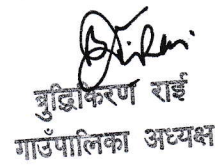 बुद्धिकिरण राई
गाउँपालिका अध्यक्ष